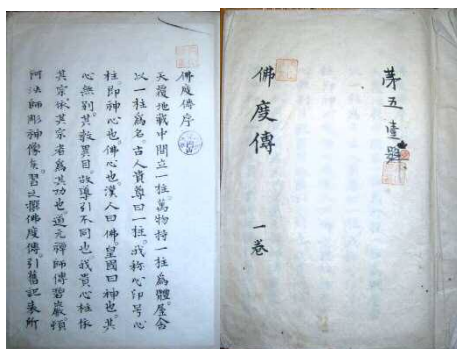 第五壹號
佛度傳 一卷
佛度傳序
天覆地載中間立一柱。萬物持一柱爲體屋舍
以一柱爲名。古人資尊曰一柱。我称心印号心
柱即神心也。佛心也。漢人曰佛。皇國曰神也。其
心無別。其教異目。故導引不同也。我貴心柱依
其宗承其宗者爲其功也。道元禅師傳碧巌頌
阿法師彫神像矣。習之撰佛度傳引舊記表所